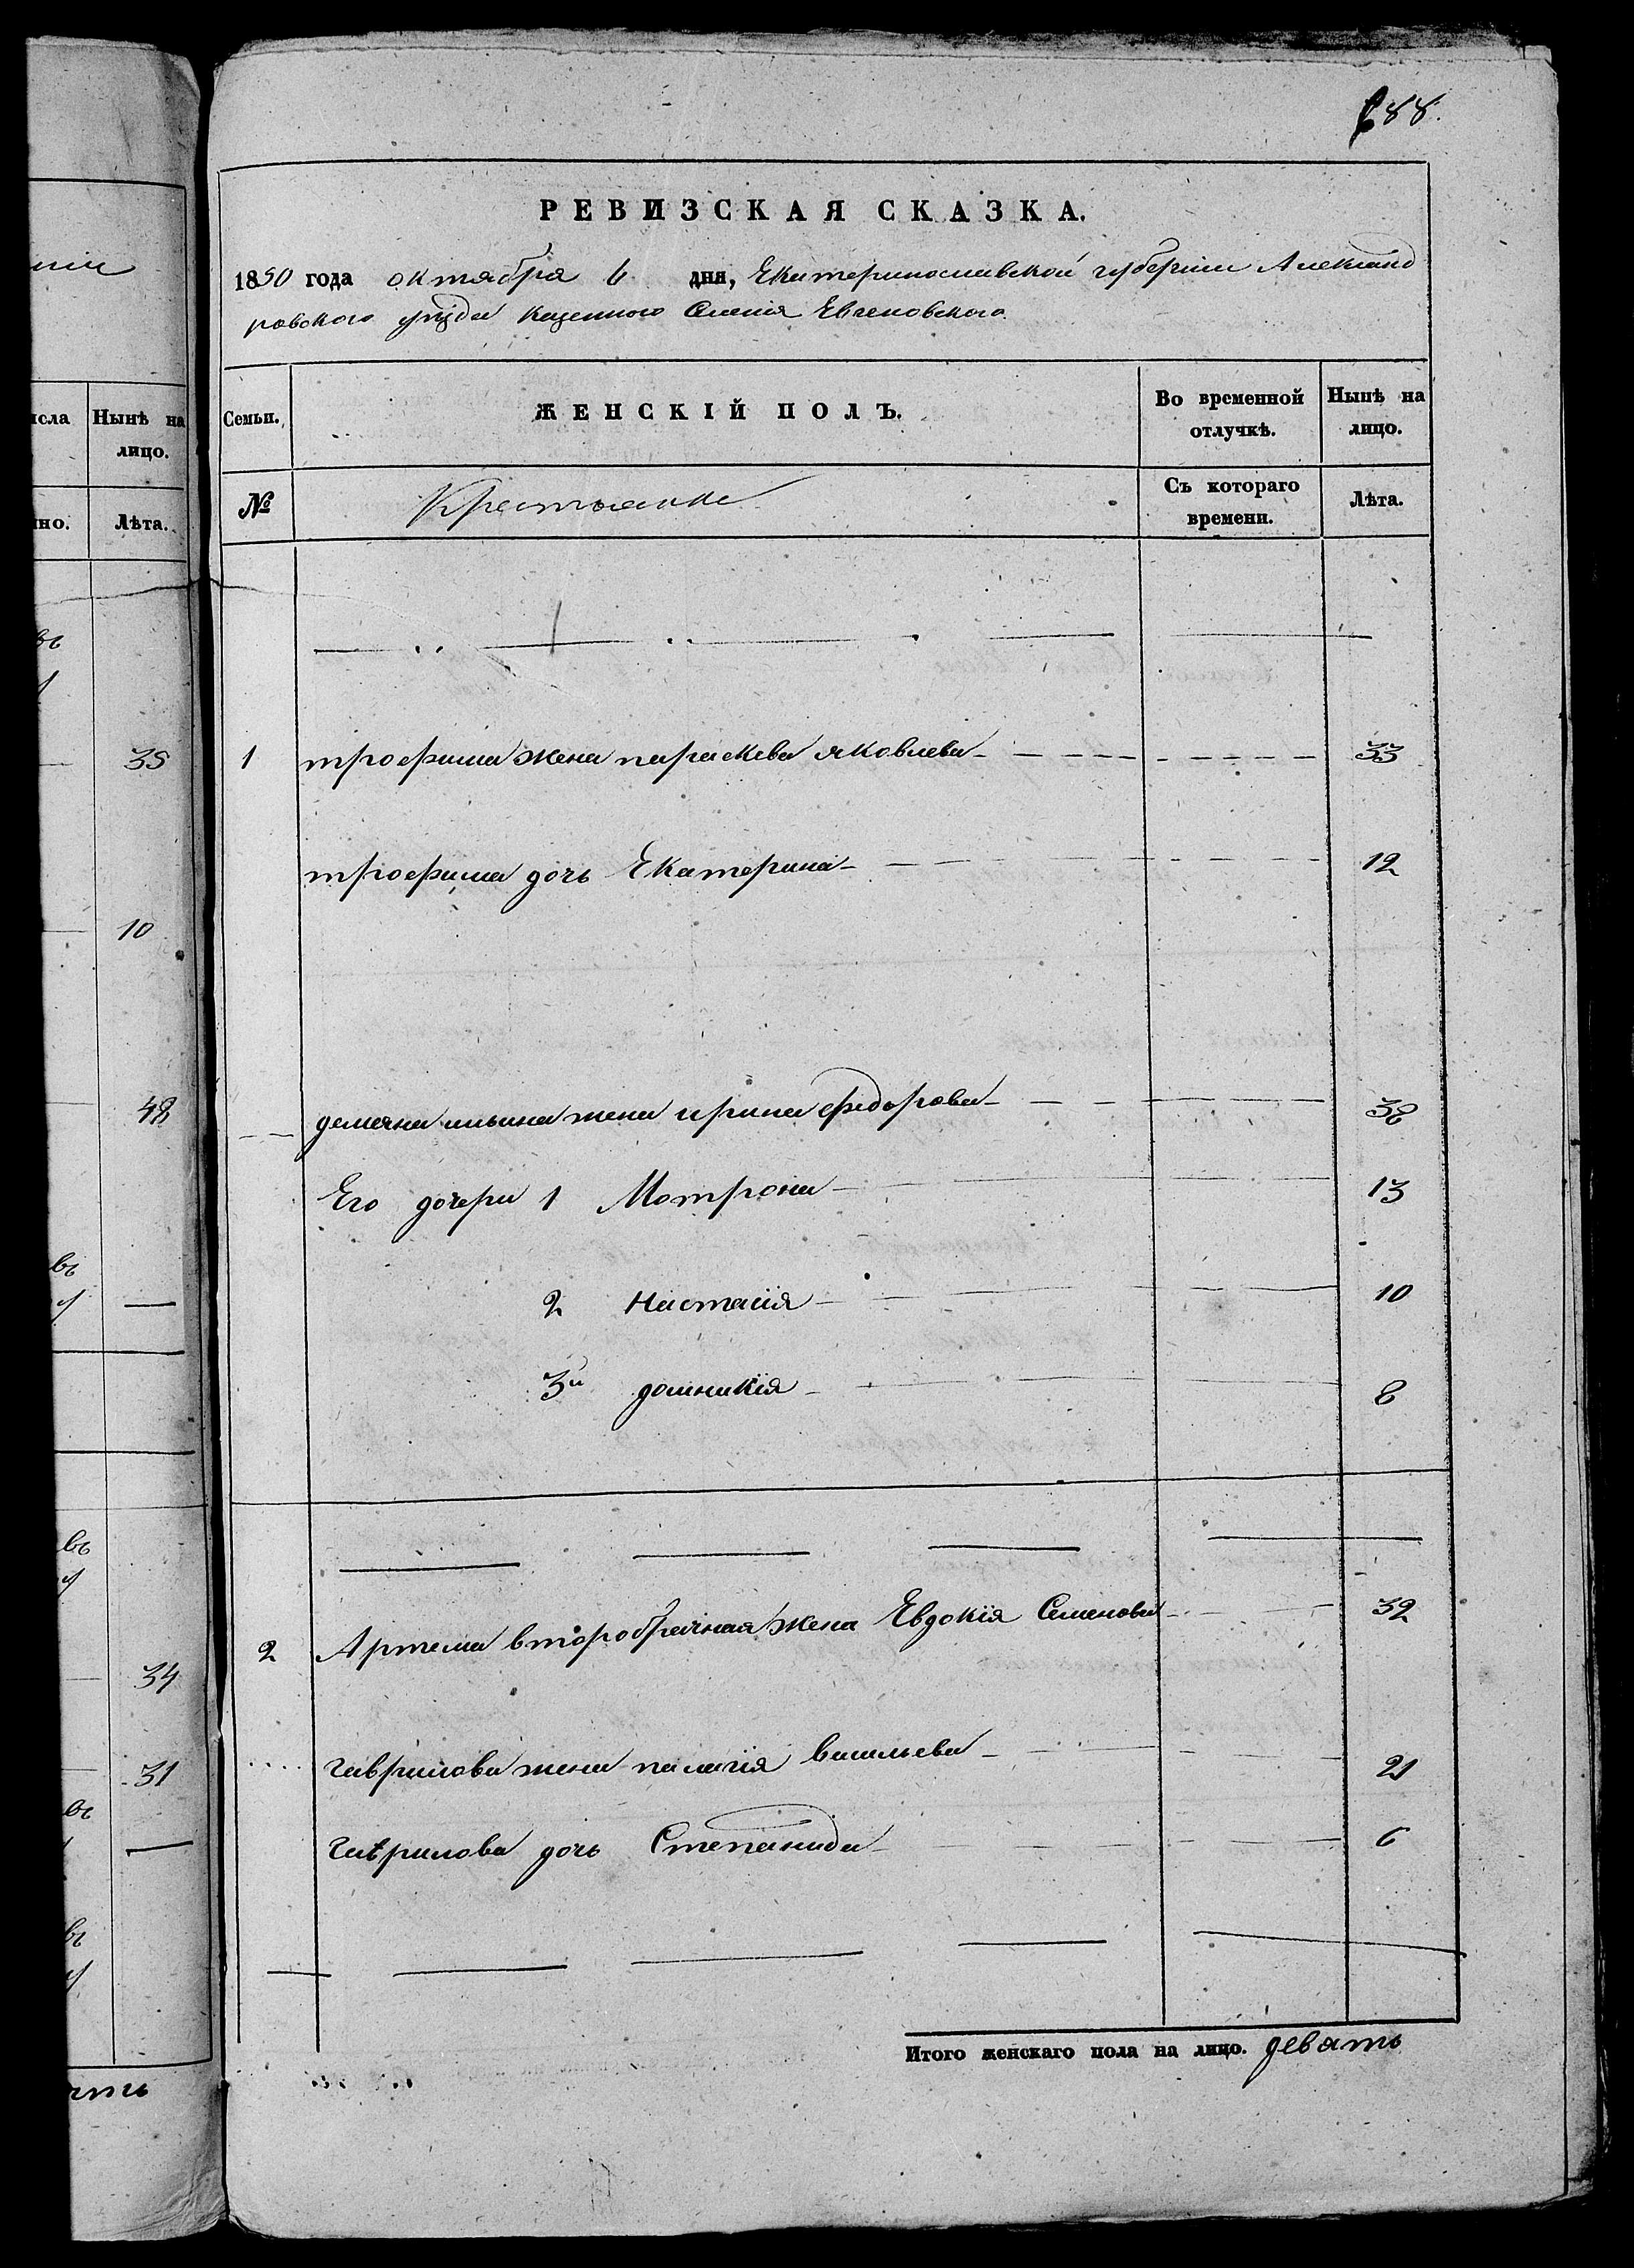 688.
РЕВИЗСКАЯ СКАЗКА.
1850 года октября 6 дня, Екатеринославской губернии Александ
ровского уѣзда казенного Селенія Евгеновского
Семьи.
ЖЕНСКІЙ ПОЛЪ.
Во временной отлучкѣ.
Нынѣ на лицо.
№
Крестьянки
Съ котораго времени.
Лѣта.
1 трофима жена параскева яковлева 33
трофима дочь Екатерина 12
ильина жена ирина федорова 38
Его дочери 1 Мотрона 13
2 настасія 10
3я домникія 8
2 Артема второбрачная жена Евдокія Семенова 32
гаврилова жена палагія васильева 21
гаврилова дочь Степанида 6
Итого женскаго пола на лицо. девять
Нынѣ на
лицо.
Лѣта.
35
10
48
34
31